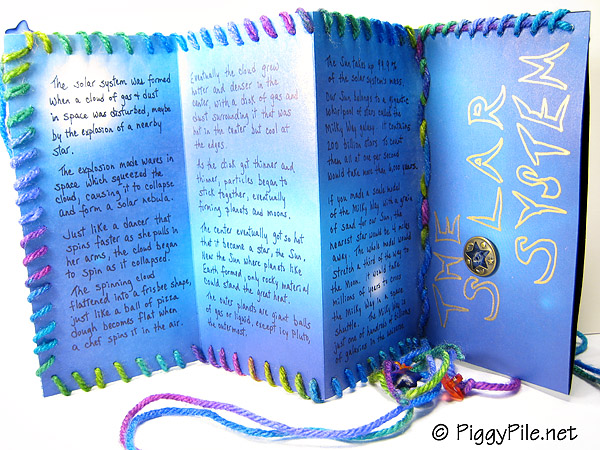 The solar system was formed
when a cloud of gas & dust
in space was disturbed, maybe
by the explosion of a nearby
star.
The explosion made waves in
space which squeezed the
cloud, causing it to collapse
and form a solar nebula.
Just like a dancer that
spins faster as she pulls in
her arms, the cloud began
to spin as it collapsed.
The spinning cloud
flattened into a frisbee shape,
just like a ball of pizza
dough becomes flat when
a chef spins it in the air.
Eventually the cloud grew
hotter and denser in the
center, with a disk of gas and
dust surrounding it that was
hot in the center but cool at
the edges.
As the disk got thinner and
thinner, particles began to
stick together, eventually
forming planets and moons.
The center eventually got so hot
that it became a star, the Sun.
Near the Sun where planets like
Earth formed, only rocky material
could stand the great heat.
The outer planets are giant balls
of gas or liquid, except icy Pluto,
the outermost.
The Sun takes up 99.9%
of the solar system's mass.
Our Sun belongs to a gigantic
whirlpool of stars called the
Milky Way galaxy. It contains
200 billion stars. To count
them at one per second
would take more than 6,000 years.
If you made a scale model
of the Milky Way with a grain
of sand for our Sun, the
nearest star would be 4 miles
away. The whole model would
stretch a third of the way to
the Moon. It would take
millions of years to cross
the Milky Way in a space
shuttle. The Milky Way is
just one of hundreds of billions
of galaxies in the universe.
THE
S LAR
SYSTEM
© PiggyPile.net